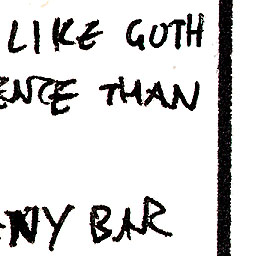 LIKE GOTH
ENCE THAN
NY BAR